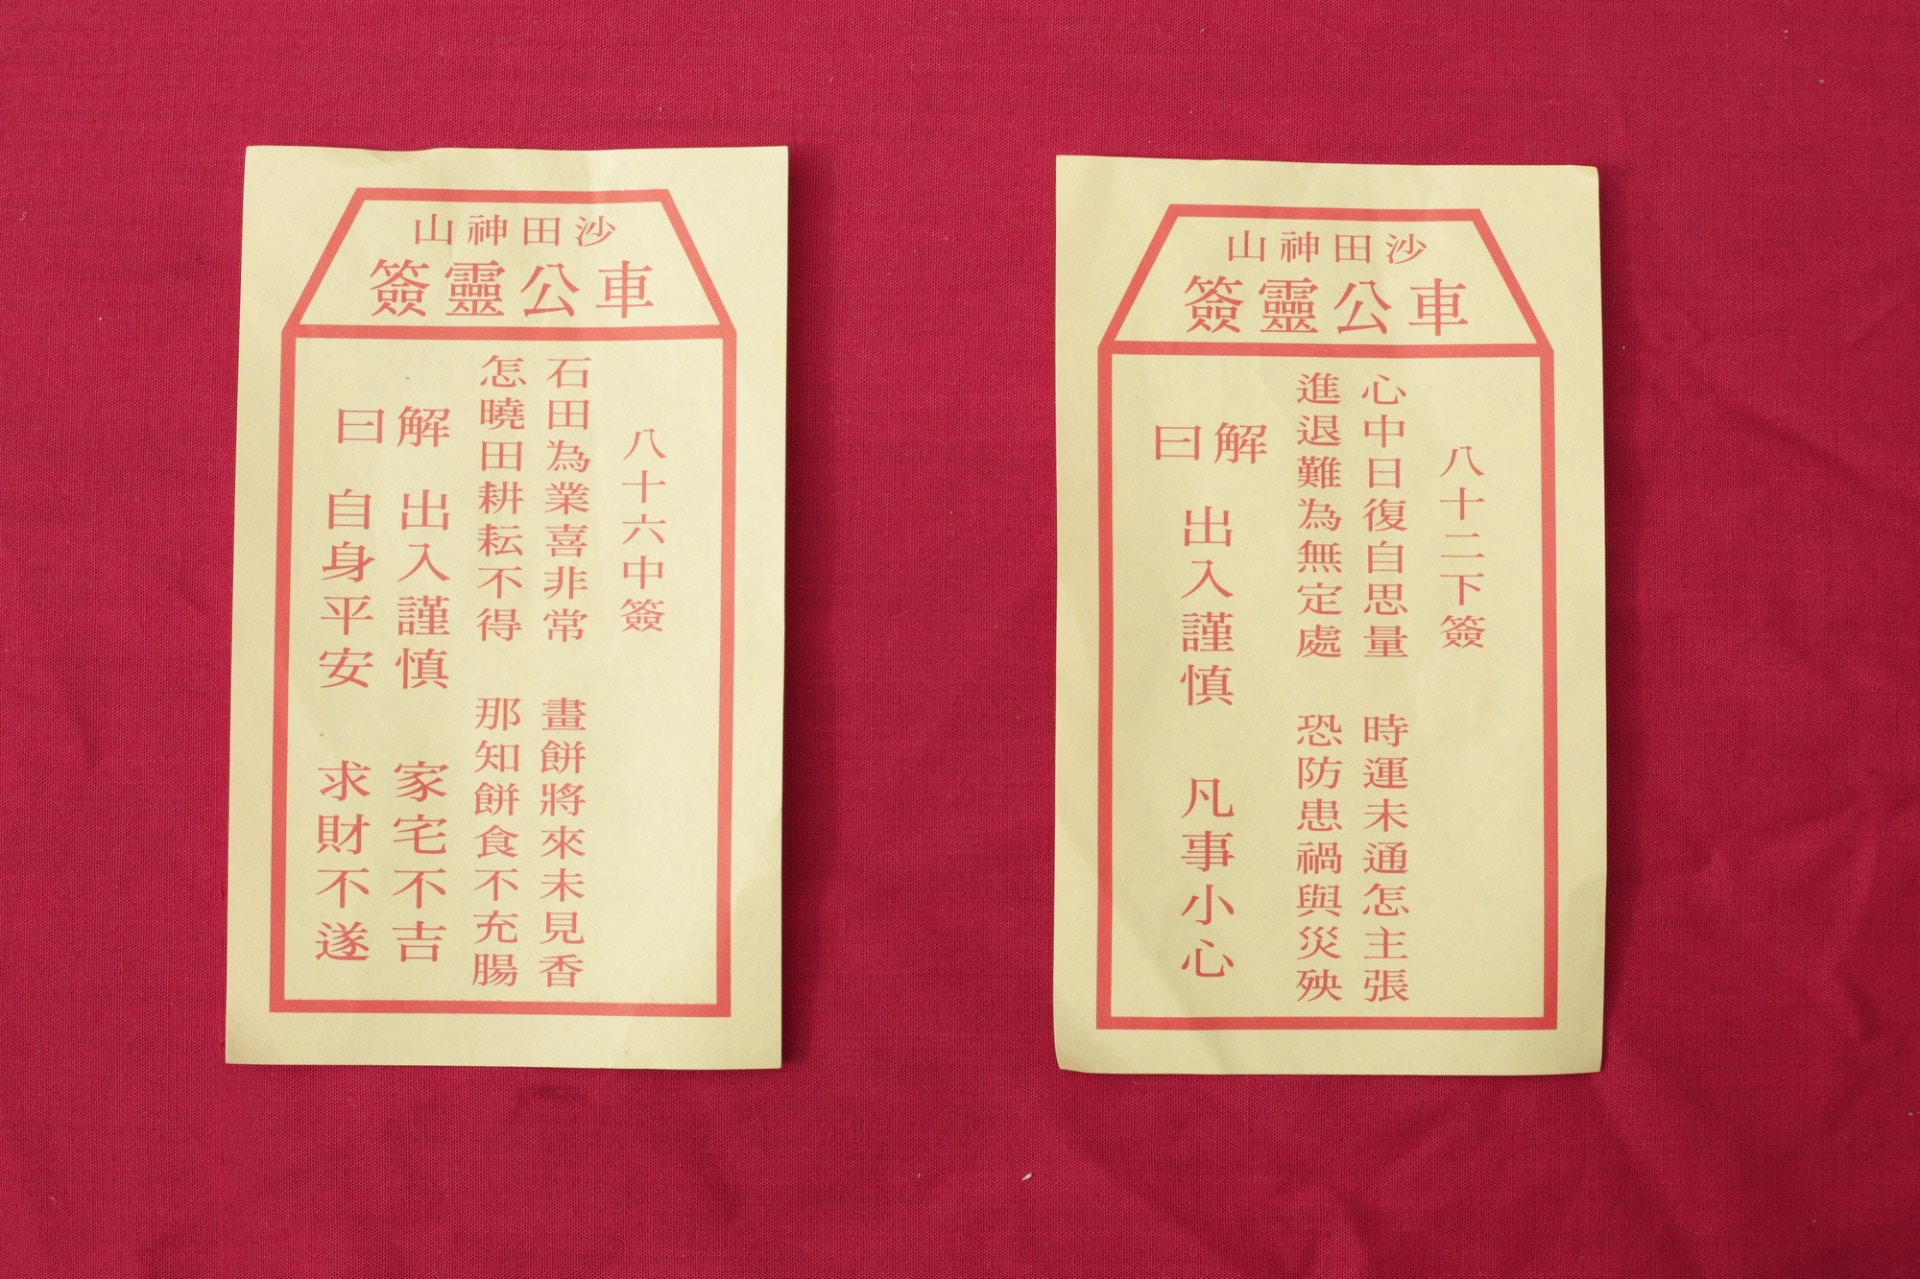 沙田神山
車公靈簽
八十六中簽
石田為業喜非常 畫餅將來未見香
怎曉田耕耘不得 那知餅食不充腸
解曰
出入謹慎 家宅不吉
自身平安 求財不遂
沙田神山
車公靈簽
八十二下簽
心中日復自思量 時運未通怎主張
進退難為無定處 恐防患禍與災殃
解曰
出入謹慎 凡事小心